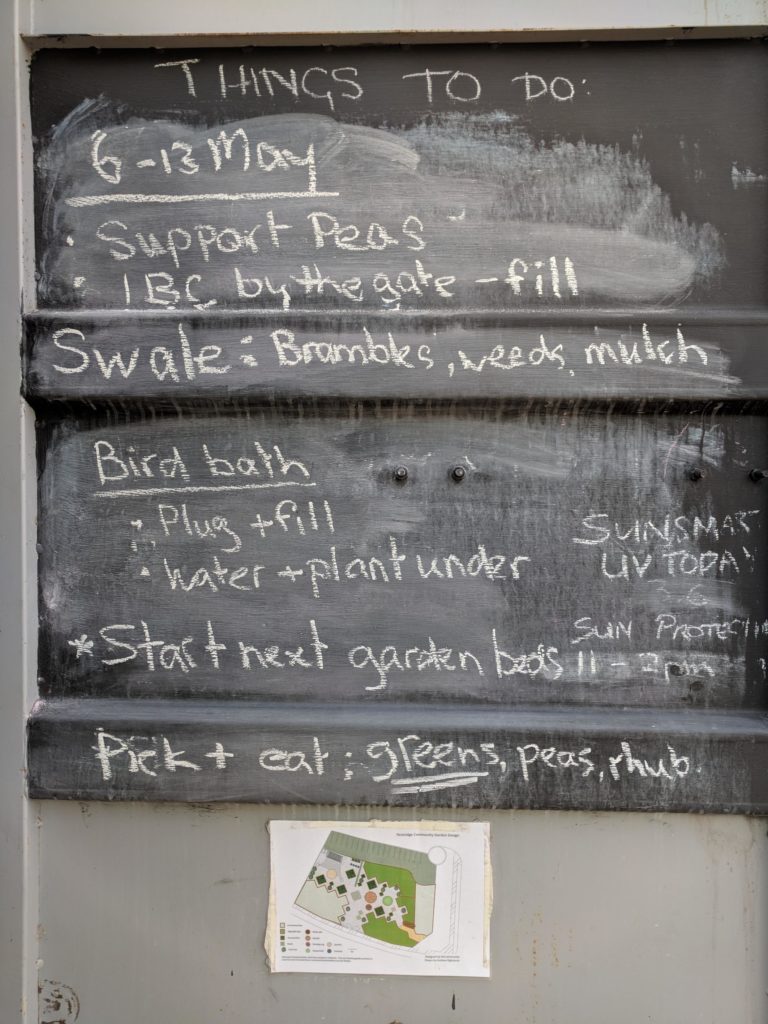 THINGS TO DO:
6-13 May
• Support Peas
• IBC by the gate - fill
Swale: Brambles, weeds, mulch
Bird bath
• Plug + fill
• Water + plant under
SUNSMAR
UV TODAY
6
* Start next garden beds
SUN PROTECTI
11 - 2pm
Pick + eat: greens, peas, rhub.
Community Garden Design